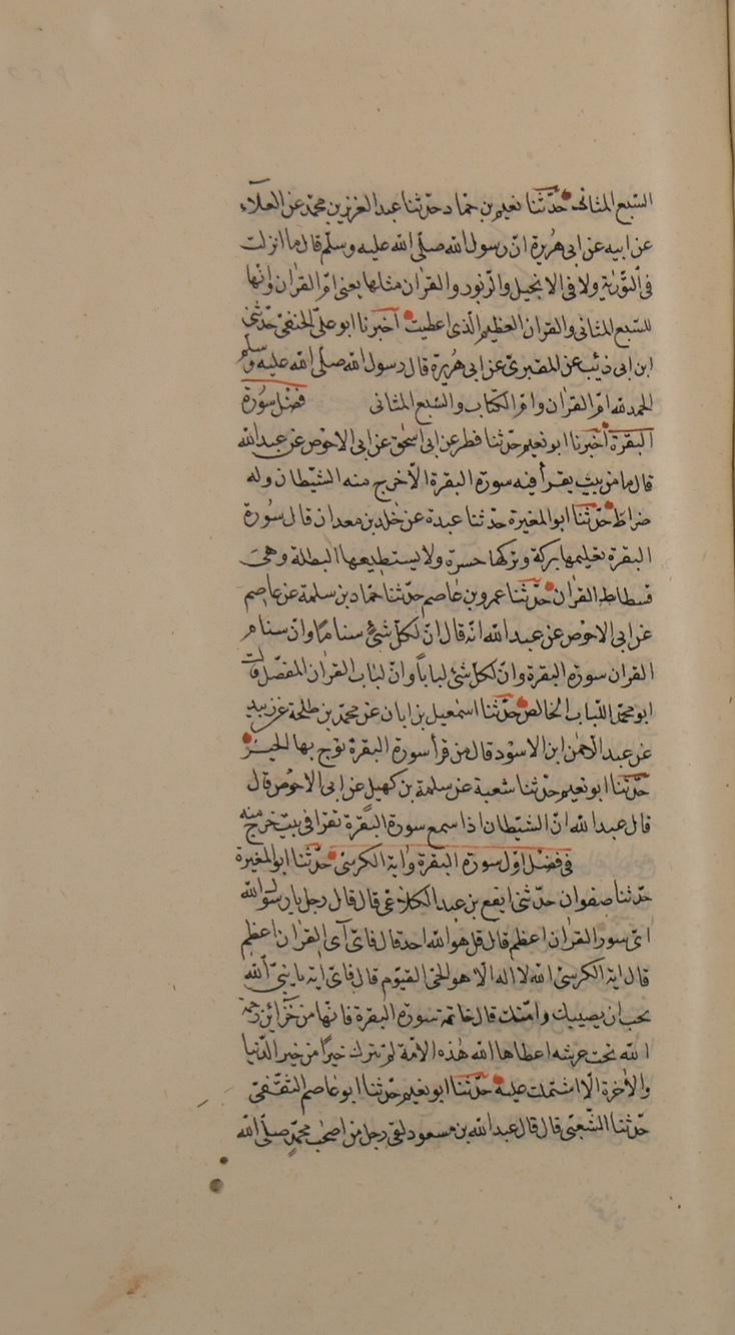 السّبع المثانى حدّثنا نعيم بن حمّاد حدّثنا عبد العزيز بن محمّد عن العلاء
عن ابيه عن ابى هُريرة انّ رسول الله صلّى الله عليه وسلّم قال ما انزلت
فى التّورٰية ولا فى الانجيل والزّبور والقرٰان مثلها يعنى امّ القرٰان وانّها
للسّبع المثانى والقرٰان العظيم الّذى اعطيت اخبرنا ابو علىّ الحنفىّ حدّثنى
ابن ابى ذئب عن المقبرىّ عن ابى هُريرة قال رسول الله صلّى الله عليه وسلّم
الحمد لله امّ القرٰان وامّ الكتاب والسّبع المثانى فضل سورة
البقرة اخبرنا ابو نعيم حدّثنا فطر عن ابى اسحٰق عن ابى الاحوص عن عبد الله
قال ما من بيت يقرأ فيه سورة البقرة الّا خرج منه الشّيطان وله
ضراط حدّثنا ابو المغيرة حدّثنا عبدة عن خٰلد بن معدان قال سُورة
البقرة تعليمها بركة وتركها حسرة ولا يستطيعها البطلة وهى
فسطاط القرٰان حدّثنا عمرو بن عاصم حدّثنا حمّاد بن سلمة عن عاصم
عن ابى الاحوص عن عبد الله انّه قال انّ لكلّ شئ سناما وانّ سنام
القرٰان سورة البقرة وانّ لكلّ شئ لبابا وانّ لباب القرٰان المفصّل قال
ابو محمّد اللّباب الخالص حدّثنا اسمٰعيل بن ابان عن محمّد بن طلحة عن زبيد
عن عبد الرّحمٰن ابن الاسود قال من قرأ سورة البقرة توّج بها الجنّة
حدّثنا ابو نعيم حدّثنا شعبة عن سلمة بن كهيل عن ابى الاحوص قال
قال عبد الله انّ الشّيطان اذا سمع سورة البقرة تقرأ فى بيت خرج منه
فى فضل اوّل سورة البقرة واية الكرسىّ حدّثنا ابو المغيرة
حدّثنا صفوان حدّثنى ايفع بن عبد الكلاعىّ قال قال رجل يا رسول الله
اىّ سور القرٰان اعظم قال قل هو الله احد قال فاىّ آى القرٰان اعظم
قال اية الكرسىّ الله لا اله الّا هو الحىّ القيّوم قال فاىّ اية يا نبىّ الله
تحب ان يصيبك وامّتك قال خاتمة سورة البقرة فانّها من خزائن رحمة
الله تحت عرشه اعطاها الله هٰذه الامّة لم تترك خيرا من خير الدّنيا
والاٰخرة الّا اشتملت عليه حدّثنا ابو نعيم حدّثنا ابو عاصم الثّقفىّ
حدّثنا الشّعبىّ قال قال عبد الله بن مسعود لقى رجل من اصحٰب محمّد صلّى الله